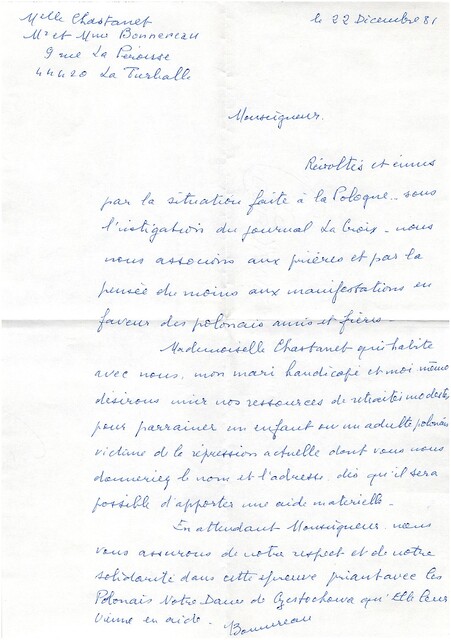 Melle Chastanet
Mr et Mme Bonnereau
9 rue La Pérouse
44420 La Turballe
le 22 Décembre 81
Monseigneur.
Révoltés et émus
par la situation faite à la Pologne.. sous
l'instigation du journal La Croix - nous
nous associons aux prières et par la
pensée du moins aux manifestations en
faveur des polonais amis et frères -
Mademoiselle Chastanet qui habite
avec nous, mon mari handicapé et moi même
désirons unir nos ressources de retraités modestes
pour parrainer un enfant ou un adulte polonais
victime de la répression actuelle dont vous nous
donneriez le nom et l'adresse, dès qu'il sera
possible d'apporter une aide matérielle -
En attendant Monseigneur nous
vous assurons de notre respect et de notre
solidarité dans cette épreuve priant avec les
Polonais Notre-Dame de Czestochowa qu'Elle leur
vienne en aide.
Bonnereau